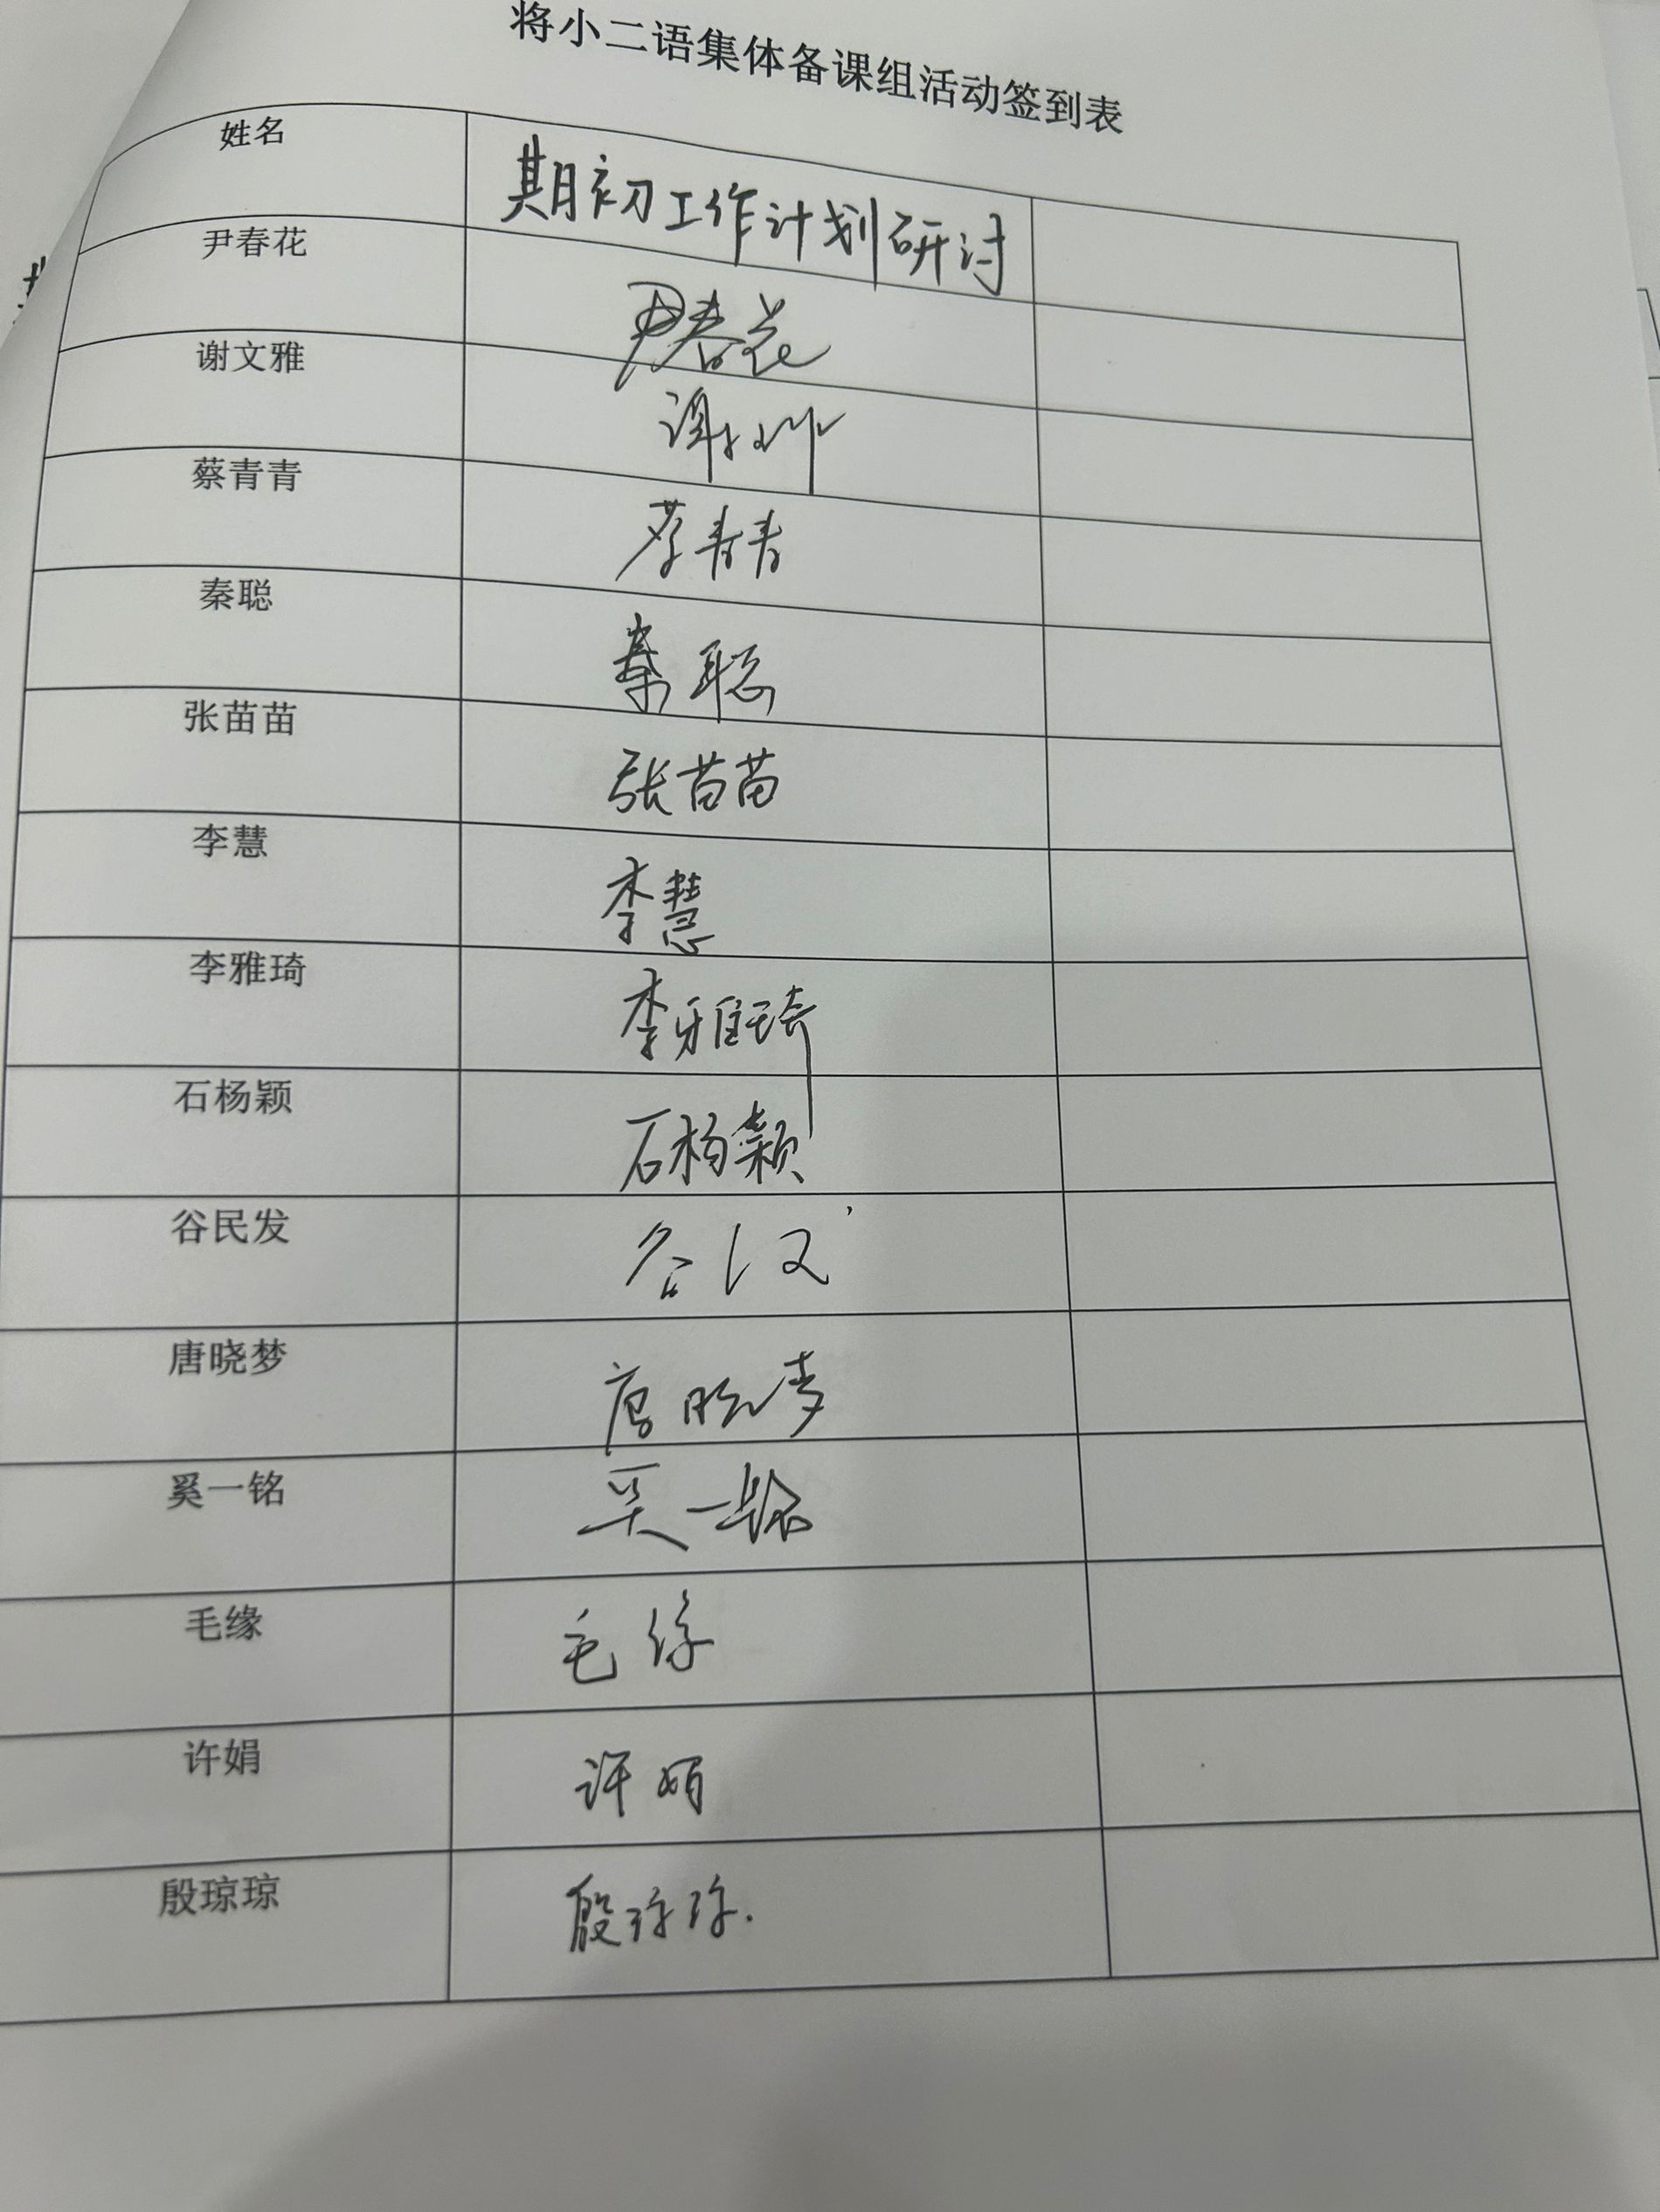 将小二语集体备课组活动签到表
姓名 期初工作计划研讨
尹春花 尹春花
谢文雅 谢文雅
蔡青青 蔡青青
秦聪 秦聪
张苗苗 张苗苗
李慧 李慧
李雅琦 李雅琦
石杨颖 石杨颖
谷民发 谷
唐晓梦 唐晓梦
奚一铭 奚一铭
毛缘 毛缘
许娟 许娟
殷琼琼 殷琼琼.